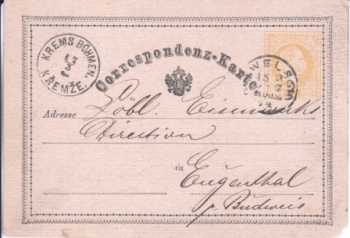 KREMS BÖHMEN.
KŘEMŽE.
Correspondenz-Karte
WELS
Adresse
Löbl. Eisenwerks
Direction
in
Eugenthal
p. Budweis